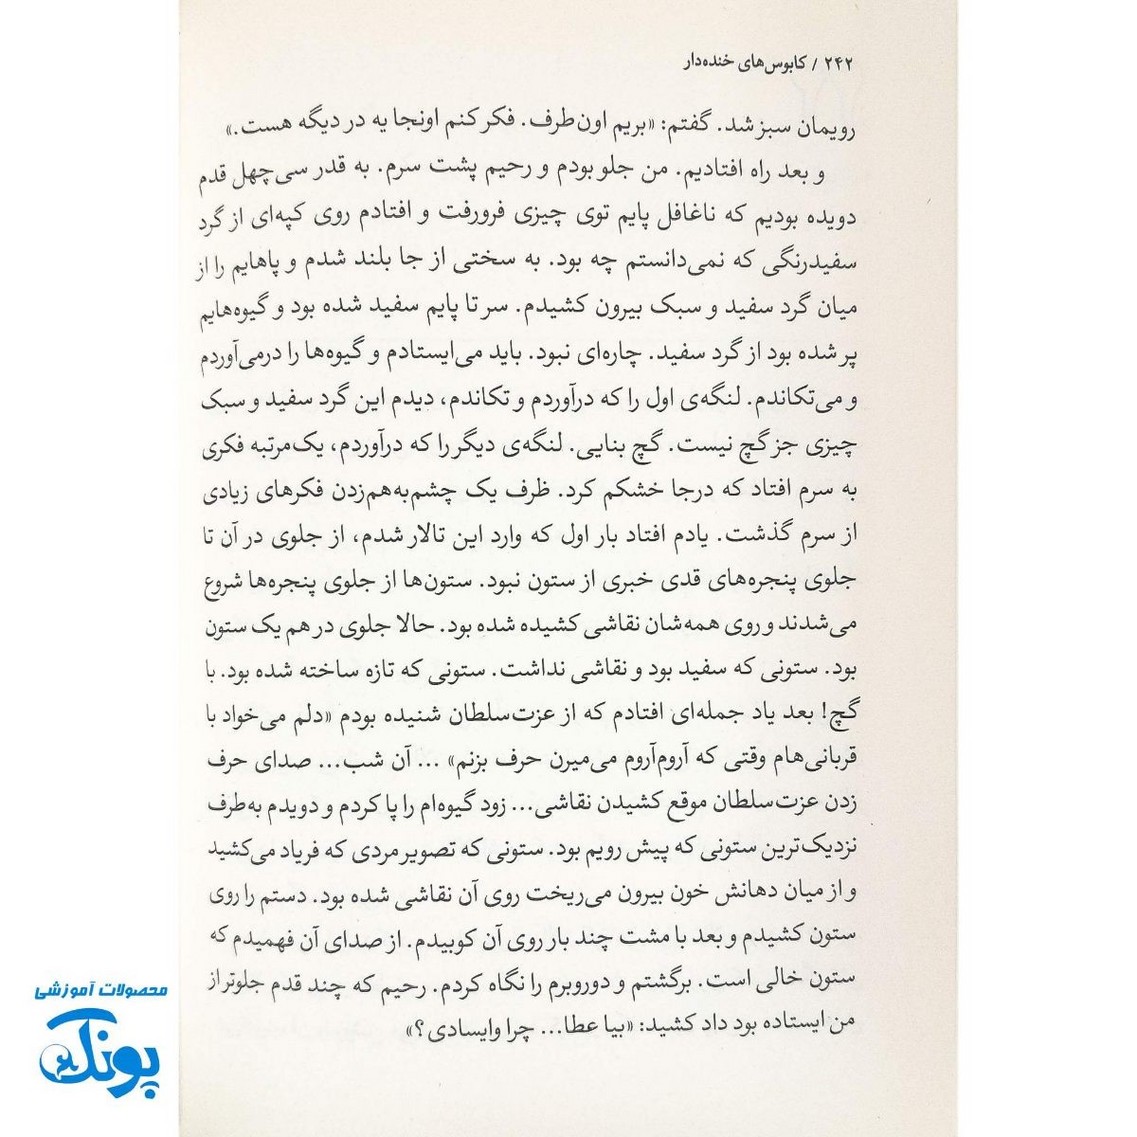 ۲۴۲ / کابوس‌های خنده‌دار
رویمان سبز شد. گفتم: «بریم اون‌طرف. فکر کنم اونجا یه در دیگه هست.»
و بعد راه افتادیم. من جلو بودم و رحیم پشت سرم. به قدر سی‌چهل قدم
دویده بودیم که ناغافل پایم توی چیزی فرورفت و افتادم روی کپه‌ای از گرد
سفیدرنگی که نمی‌دانستم چه بود. به سختی از جا بلند شدم و پاهایم را از
میان گرد سفید و سبک بیرون کشیدم. سر تا پایم سفید شده بود و گیوه‌هایم
پر شده بود از گرد سفید. چاره‌ای نبود. باید می‌ایستادم و گیوه‌ها را درمی‌آوردم
و می‌تکاندم. لنگه‌ی اول را که درآوردم و تکاندم، دیدم این گرد سفید و سبک
چیزی جز گچ نیست. گچ بنایی. لنگه‌ی دیگر را که درآوردم، یک‌مرتبه فکری
به سرم افتاد که درجا خشکم کرد. ظرف یک چشم‌به‌هم‌زدن فکرهای زیادی
از سرم گذشت. یادم افتاد بار اول که وارد این تالار شدم، از جلوی در آن تا
جلوی پنجره‌های قدی خبری از ستون نبود. ستون‌ها از جلوی پنجره‌ها شروع
می‌شدند و روی همه‌شان نقاشی کشیده شده بود. حالا جلوی در هم یک ستون
بود. ستونی که سفید بود و نقاشی نداشت. ستونی که تازه ساخته شده بود. با
گچ! بعد یاد جمله‌ای افتادم که از عزت‌سلطان شنیده بودم «دلم می‌خواد با
قربانی‌هام وقتی که آروم‌آروم می‌میرن حرف بزنم» ... آن شب... صدای حرف
زدن عزت‌سلطان موقع کشیدن نقاشی... زود گیوه‌ام را پا کردم و دویدم به‌طرف
نزدیک‌ترین ستونی که پیش رویم بود. ستونی که تصویر مردی که فریاد می‌کشید
و از میان دهانش خون بیرون می‌ریخت روی آن نقاشی شده بود. دستم را روی
ستون کشیدم و بعد با مشت چند بار روی آن کوبیدم. از صدای آن فهمیدم که
ستون خالی است. برگشتم و دوروبرم را نگاه کردم. رحیم که چند قدم جلوتر از
من ایستاده بود داد کشید: «بیا عطا... چرا وایسادی؟»
محصولات آموزشی
پونک